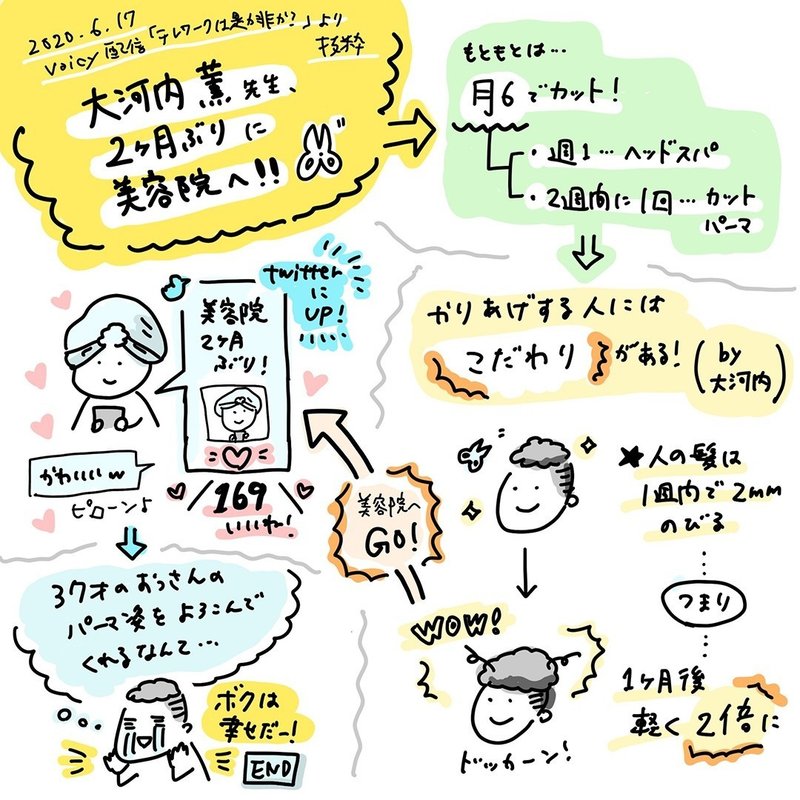 2020.6.17
voicy配信「テレワークは是か非か?」より
抜粋
大河内 薫 先生、
2ヶ月ぶりに
美容院へ!!
もともとは…
月6でカット!
・週1…ヘッドスパ
・2週間に1回…カット
パーマ
かりあげする人には
こだわりがある!
(by
大河内)
★人の髪は
1週間で2mm
のびる
つまり
1ヶ月後
軽く2倍に
WOW!
ドッカーン!
美容院へ
GO!
twitter
に
UP!
美容院
2ヶ月
ぶり!
169
いいね!
かわいいw
ピローン♪
37才のおっさんの
パーマ姿をよろこんで
くれるなんて…
ボクは
幸せだー!
END